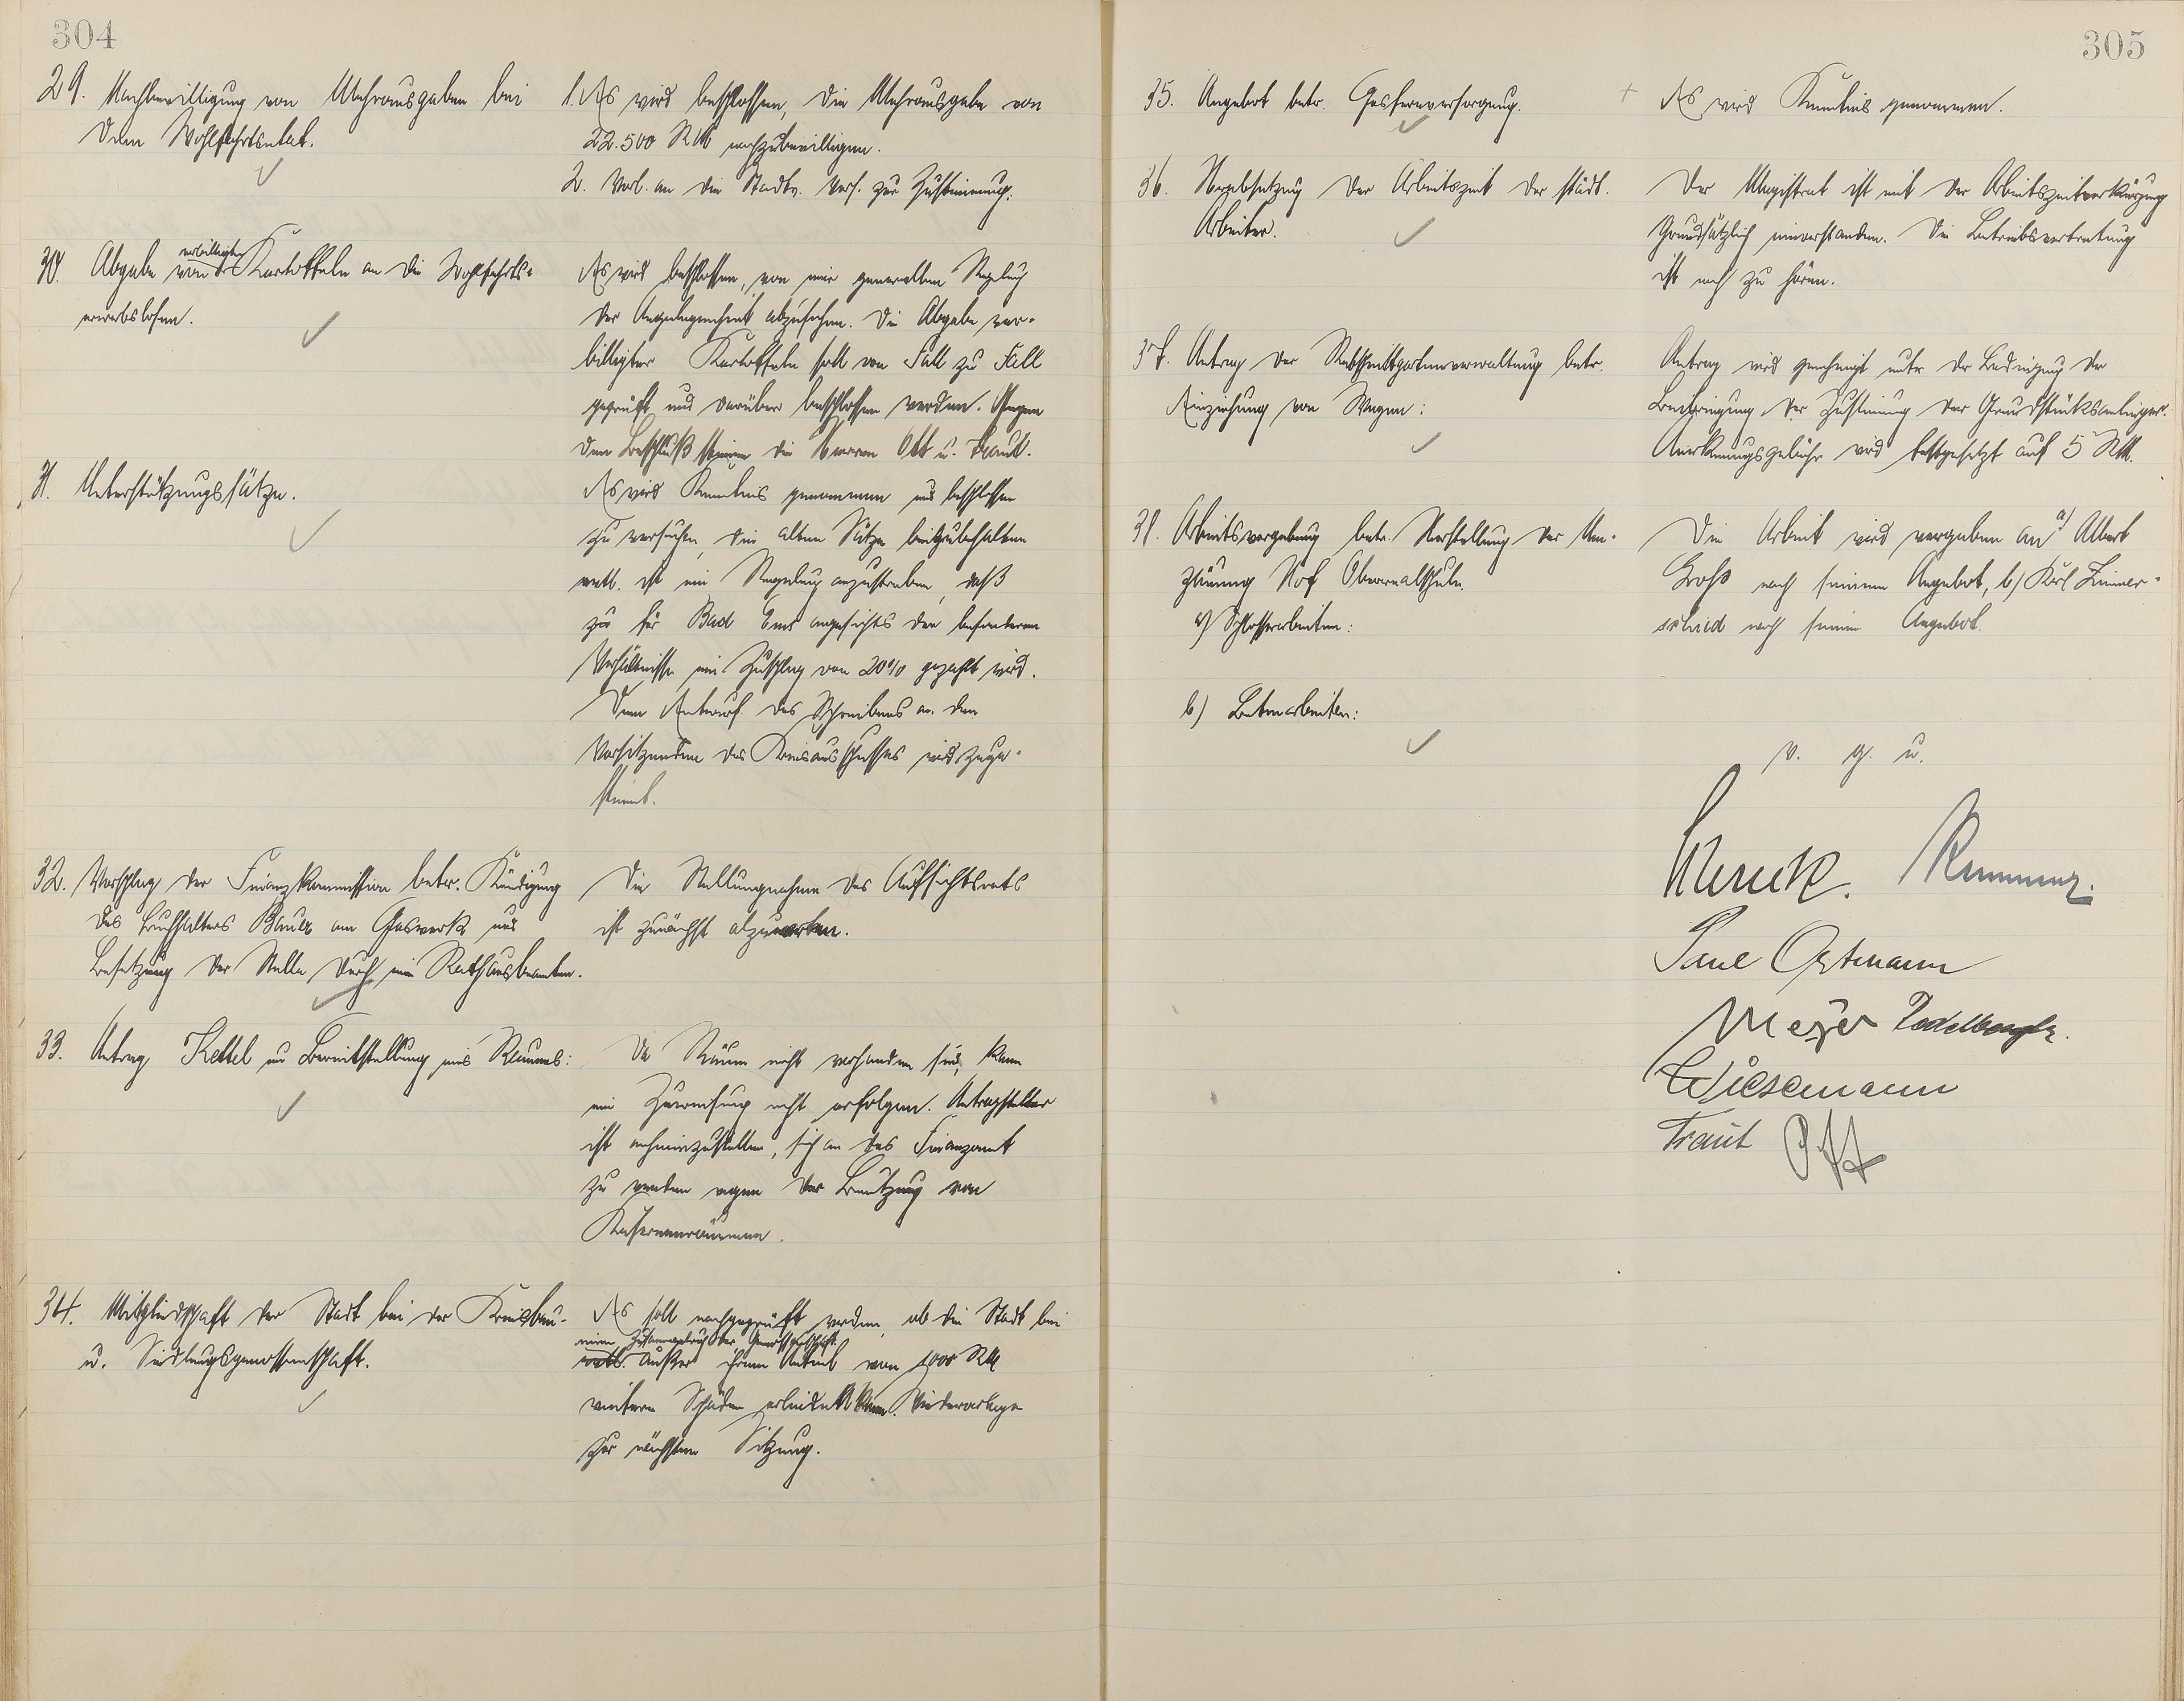 304
29. Nachbewilligung von Mehrausgaben bei
dem Wohlfahrtsetat.
1. Es wird beschlossen, die Mehrausgabe von
22.500 RM nachzubewilligen.
2. Vorl. an die Stadtv. Vers. zur Zustimmung.
30. Abgabe von verbilligten Kartoffeln an die Wohlfahrts-
erwerbslosen.
Es wird beschlossen, von einer generellen Regelung
der Angelegenheit abzusehen. Die Abgabe ver-
billigter Kartoffeln soll von Fall zu Fall
geprüft und darüber beschlossen werden. Gegen
den Beschluß stimmen die Herren Ott u. Traut.
31. Unterstützungssätze.
Es wird Kenntnis genommen und beschlossen
zu versuchen, die alten Sätze beizubehalten
evtl. ist eine Regelung anzustreben, daß
für Bad Ems angesichts der besonderen
Verhältnisse ein Zuschlag von 20% gezahlt wird.
Dem Entwurf des Schreibens an den
Vorsitzenden des Kreisausschusses wird zuge-
stimmt.
32. Vorschlag der Finanzkommission betr. Kündigung
des Buchhalters am Gaswerk und
Besetzung der Stelle durch einen Rathausbeamten.
Die Stellungnahme des Aufsichtsrats
ist zunächst abzuwarten.
33. Antrag Kettel um Bereitstellung eines Raumes:
Da Räume nicht vorhanden sind, kann
eine Zuweisung nicht erfolgen. Antragsteller
ist anheimzustellen, sich an das Finanzamt
zu wenden wegen der Benutzung von
Kasernenräumen.
34. Mitgliedschaft der Stadt bei der Kreisbau-
u. Siedlungsgenossenschaft.
Es soll nachgeprüft werden, ob die Stadt bei
einem Zusammenbruch der Genossenschaft
evtl. außer ihrem Anteil von 1000 RM
weiteren Schaden erleiden kann. Wiedervorlage
zur nächsten Sitzung.
305
35. Angebot betr. Gasfernversorgung.
Es wird Kenntnis genommen.
36. Herabsetzung der Arbeitszeit der städt.
Arbeiter.
Der Magistrat ist mit der Arbeitszeitverkürzung
grundsätzlich einverstanden. Die Betriebsvertretung
ist noch zu hören.
37. Antrag der betr.
Einziehung von Wegen:
Antrag wird genehmigt unter der Bedingung der
Beibringung der Zustimmung der Grundstücksanlieger.
Anerkennungsgebühr wird festgesetzt auf 5 RM.
38. Arbeitsvergebung betr. Herstellung der Um-
zäunung Hof Oberrealschule.
a) Schlosserarbeiten:
b) Betonarbeiten:
Die Arbeit wird vergeben an a) Albert
Groß nach seinem Angebot, b) Karl Zimmer-
schied nach seinem Angebot.
v. g. u.
Paul Ortmann
Meyer
Wiesemann
Traut Ott